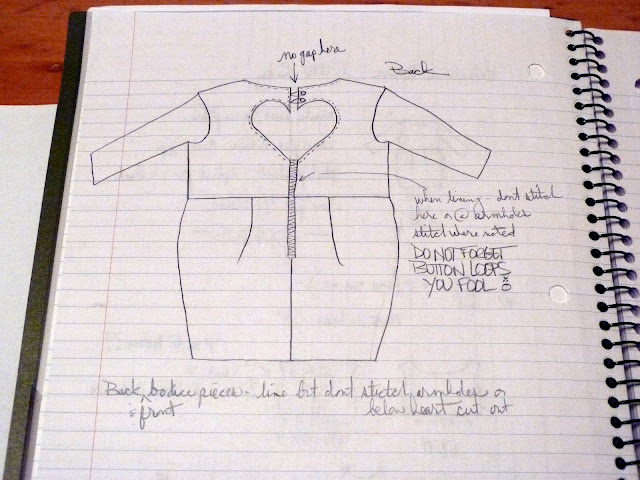 no gap here
Back
when lining - dont stitch
here or @ armholes
stitch were noted
DO NOT FORGET
BUTTON LOOPS
YOU FOOL
Back bodice pieces - line but dont stictch armholes or
& front
below heart cut out